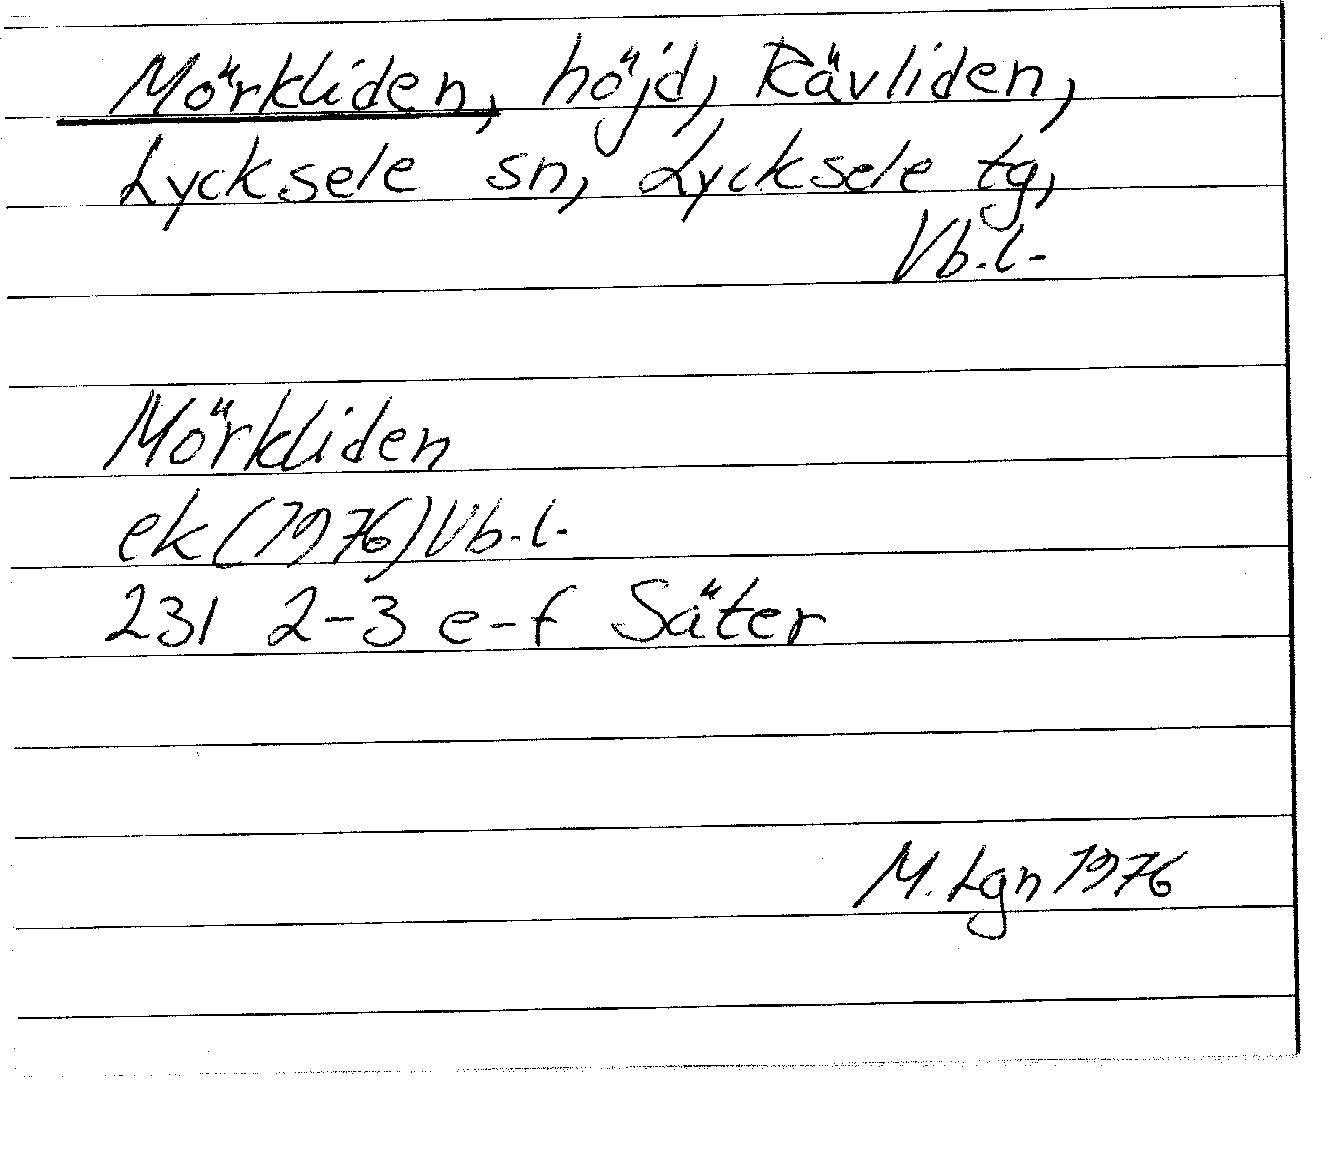 Mörkliden, höjd, Rävliden,
Lycksele sn, Lycksele tg,
Vb.l.
Mörkliden
ek (1976) Vb.l.
231 2-3 e-f Säter
M. Lgn 1976